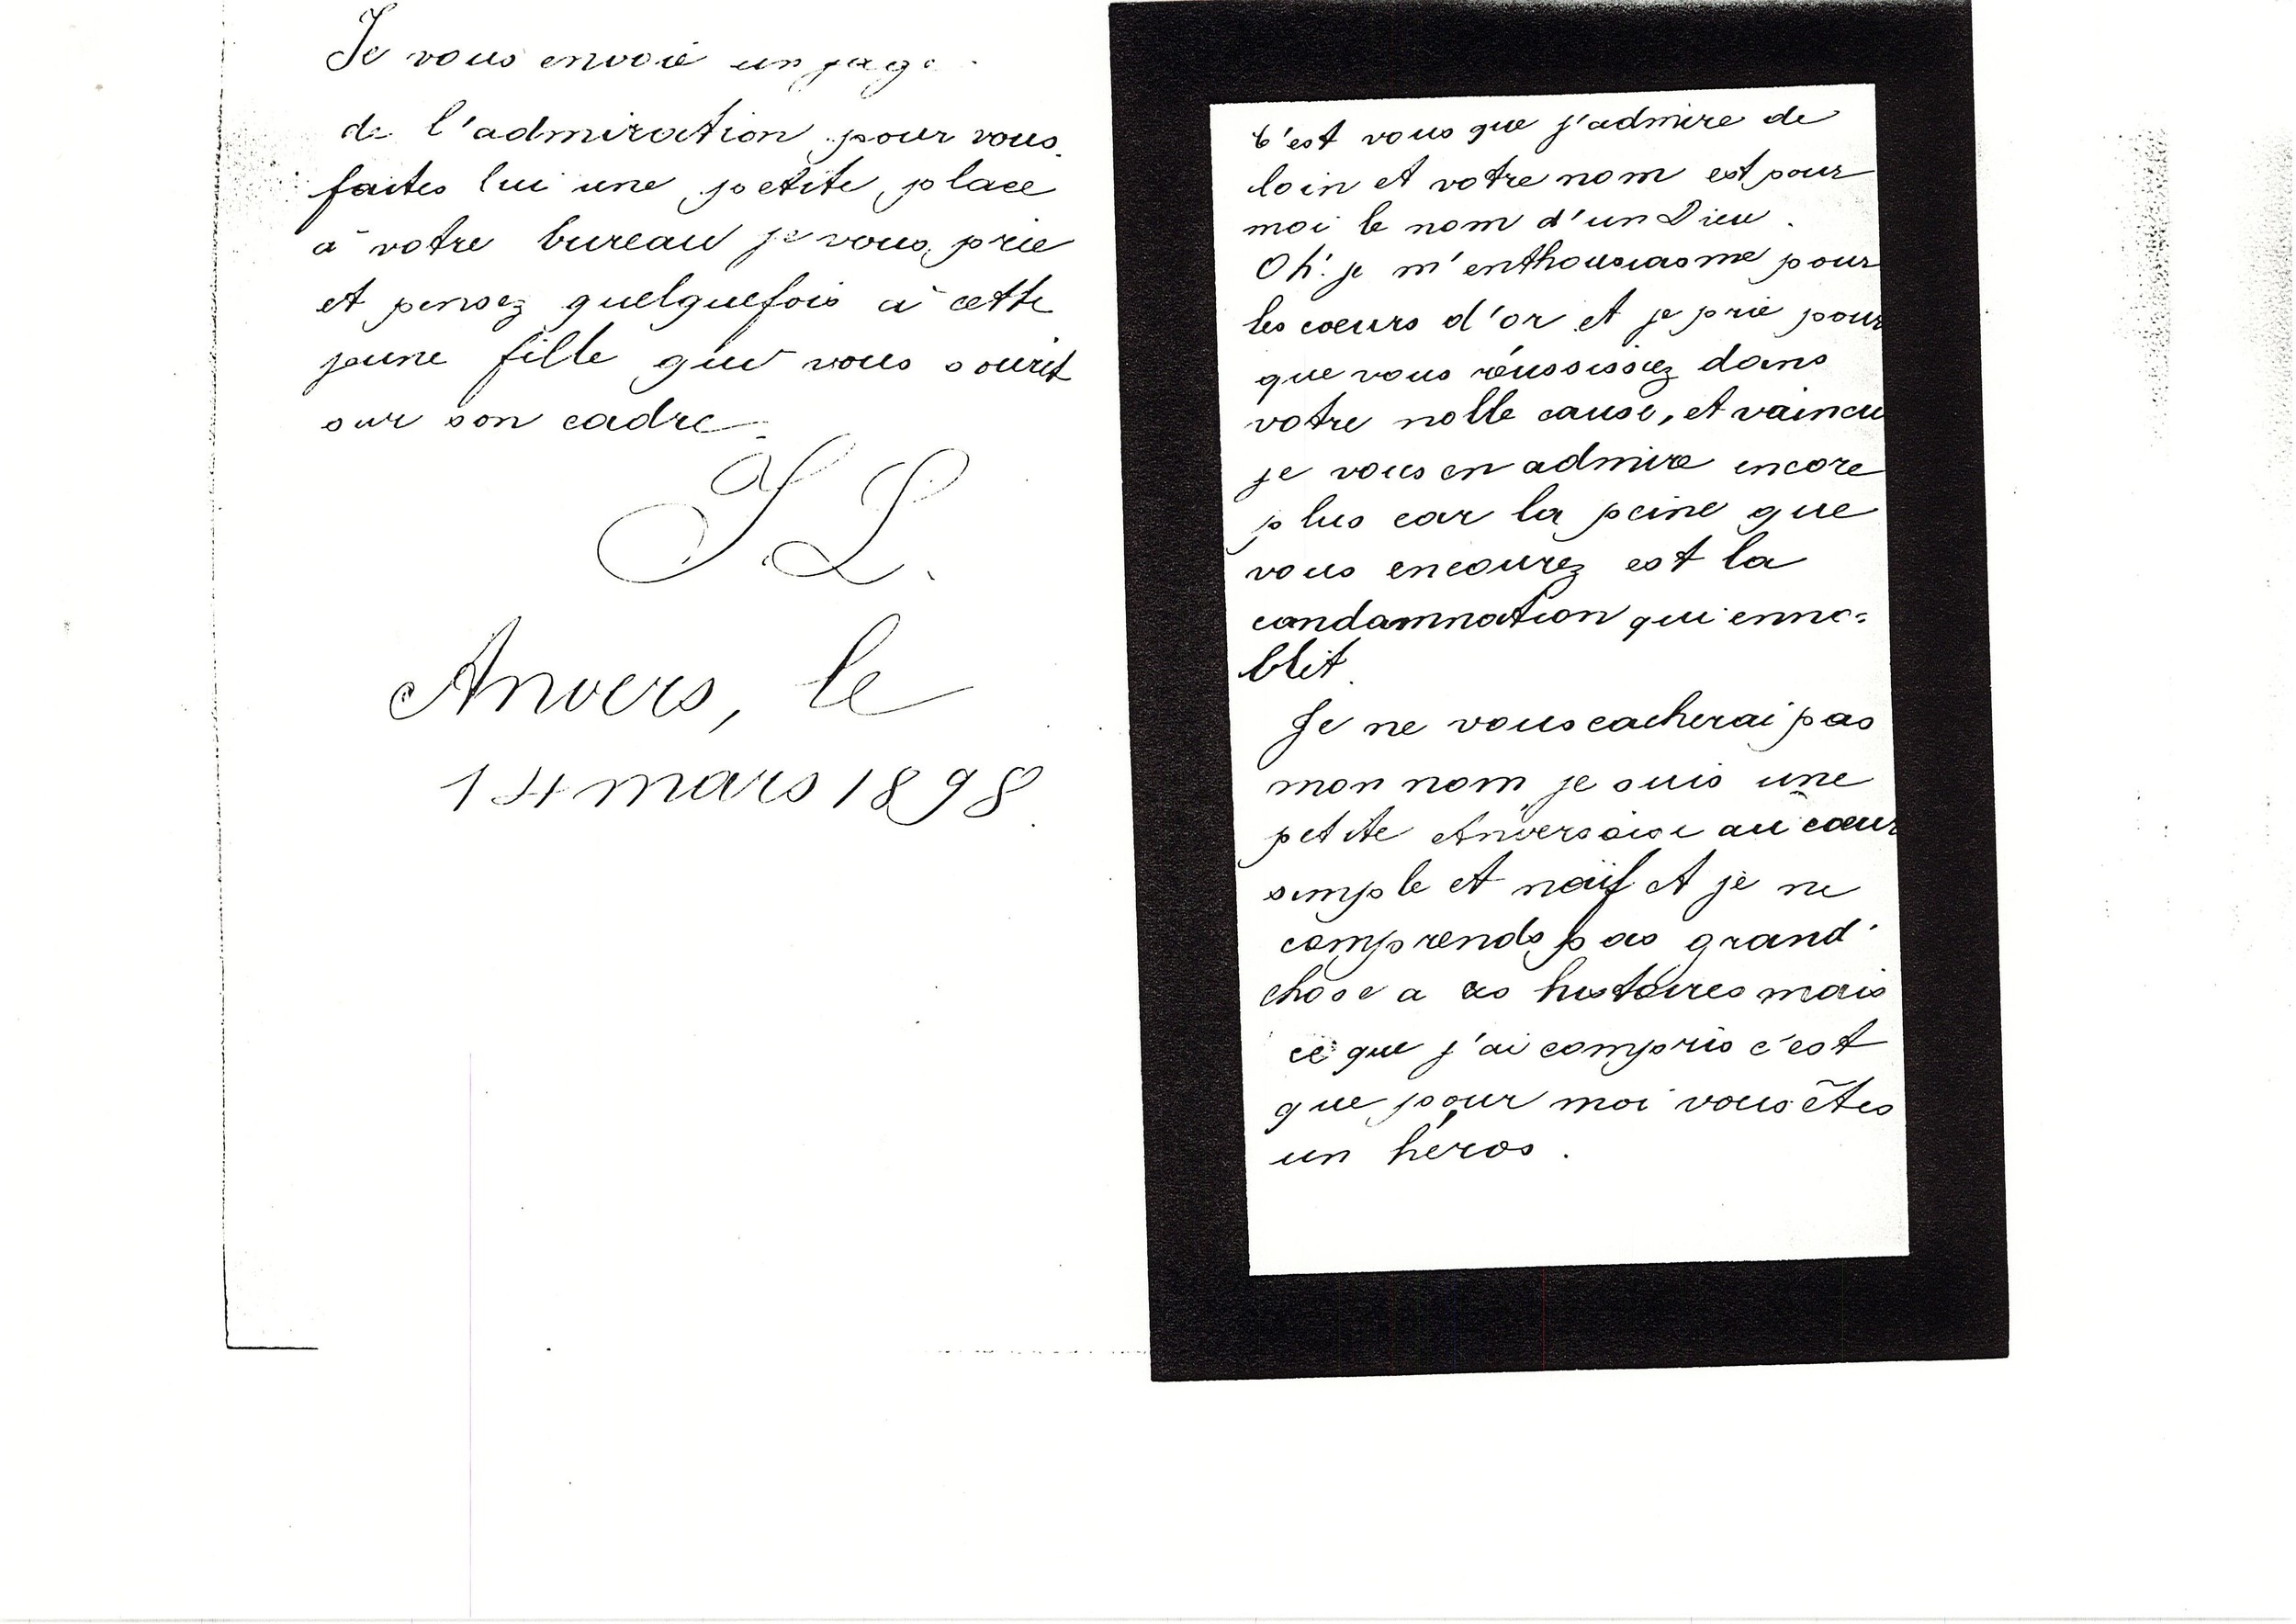 Je vous envoie un gage
de l'admiration pour vous.
faites lui une petite place
à votre bureau je vous prie
et pensez quelquefois à cette
jeune fille qui vous sourit
sur son cadre.
J. L.
Anvers, le
14 mars 1898.
C'est vous que j'admire de
loin et votre nom est pour
moi le nom d'un Dieu.
Oh! je m'enthousiasme pour
les cœurs d'or et je prie pour
que vous réussissiez dans
votre noble cause, et vaincu
je vous en admire encore
plus car la peine que
vous encourez est la
condamnation qui enno=
blit.
Je ne vous cacherai pas
mon nom je suis une
petite Anversoise au cœur
simple et naïf et je ne
comprends pas grand'
chose a ces histoires mais
ce que j'ai compris c'est
que pour moi vous êtes
un héros.